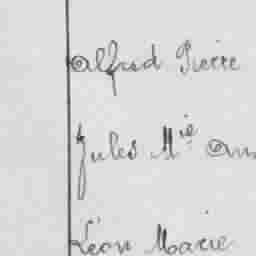 Alfred Pierre
Jules Mie
Léon Marie